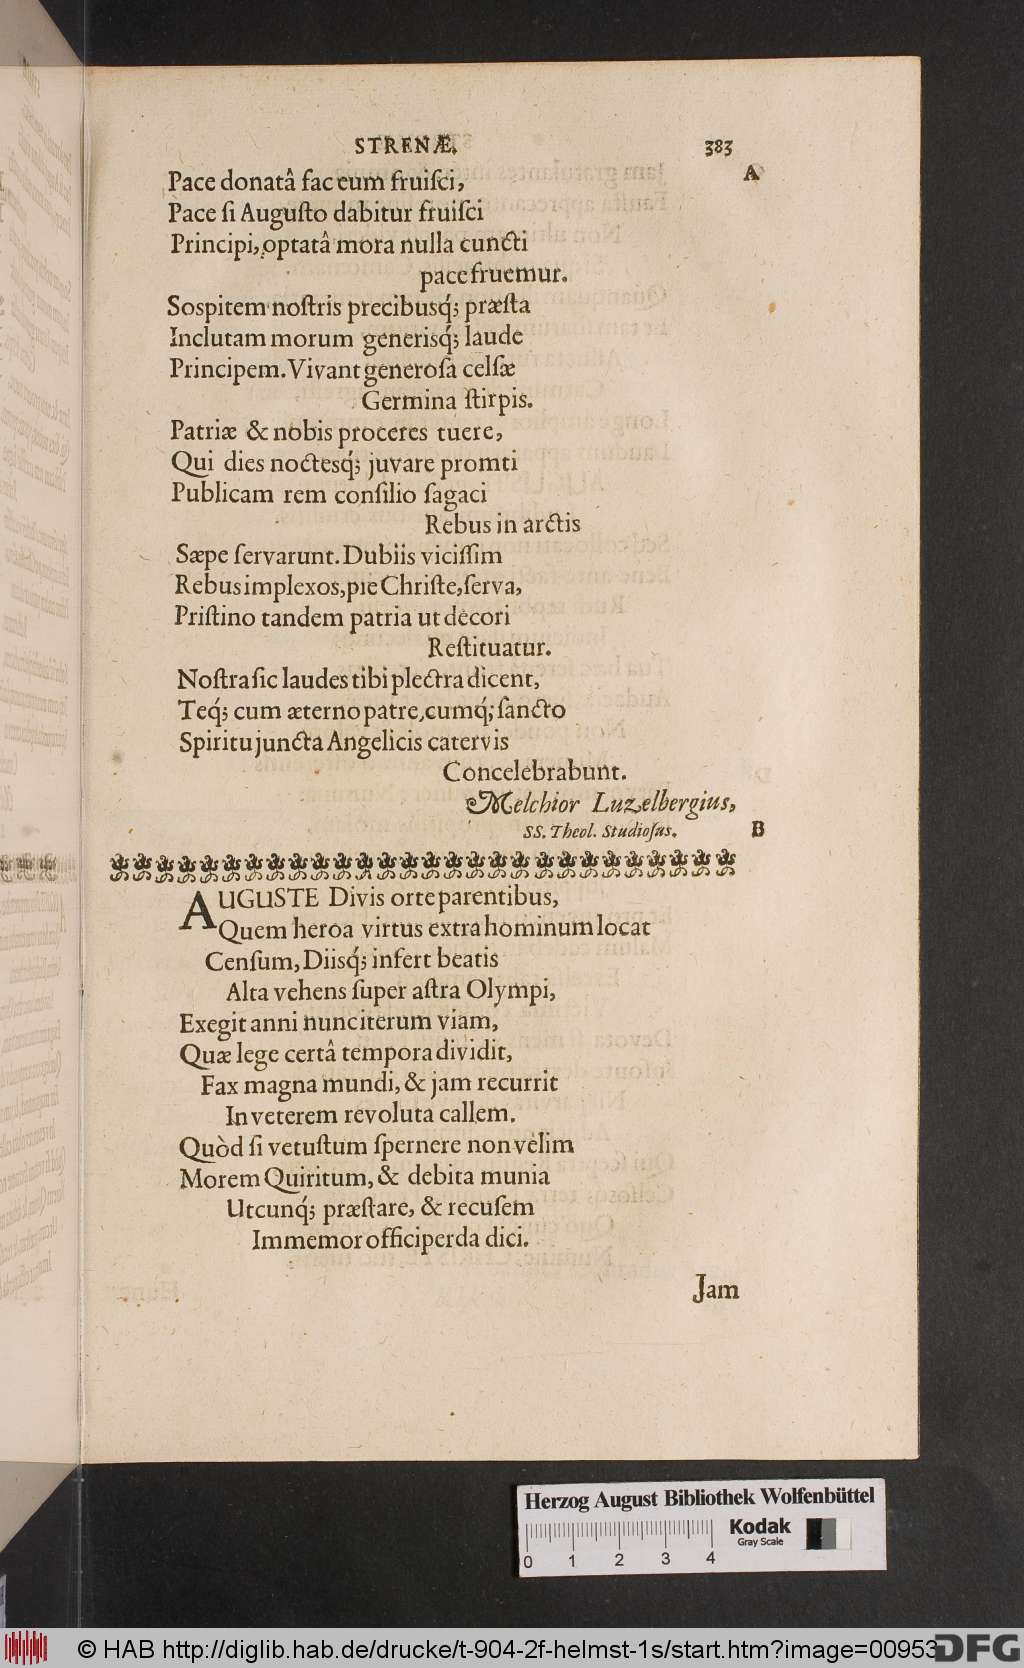 STRENÆ. 383
A
Pace donatâ fac eum fruiſci,
Pace ſi Auguſto dabitur fruiſci
Principi, optatâ mora nulla cuncti
pace fruemur.
Sospitem noſtris precibusq́; præſta
Inclutam morum generisq́; laude
Principem. Vivant generoſa celſæ
Germina ſtirpis.
Patriæ & nobis proceres tuere,
Qui dies noctesq́; juvare promti
Publicam rem conſilio ſagaci
Rebus in arctis
Sæpe ſervarunt. Dubiis viciſſim
Rebus implexos, pie Chriſte, ſerva,
Priſtino tandem patria ut decori
Reſtituatur.
Noſtra ſic laudes tibi plectra dicent,
Teq́; cum æterno patre, cumq́; ſancto
Spiritu juncta Angelicis catervis
Concelebrabunt.
Melchior Luzelbergius,
SS. Theol. Studioſus. B
AUGUSTE Divis orte parentibus,
Quem heroa virtus extra hominum locat
Cenſum, Diisq́; infert beatis
Alta vehens ſuper aſtra Olympi,
Exegit anni nunc iterum viam,
Quæ lege certâ tempora dividit,
Fax magna mundi, & jam recurrit
In veterem revoluta callem.
Quòd ſi vetuſtum ſpernere non velim
Morem Quiritum, & debita munia
Utcunq́; præſtare, & recuſem
Immemor officiperda dici.
Jam
Herzog August Bibliothek Wolfenbüttel
Kodak
Gray Scale
0 1 2 3 4
© HAB http://diglib.hab.de/drucke/t-904-2f-helmst-1s/start.htm?image=00953
DFG